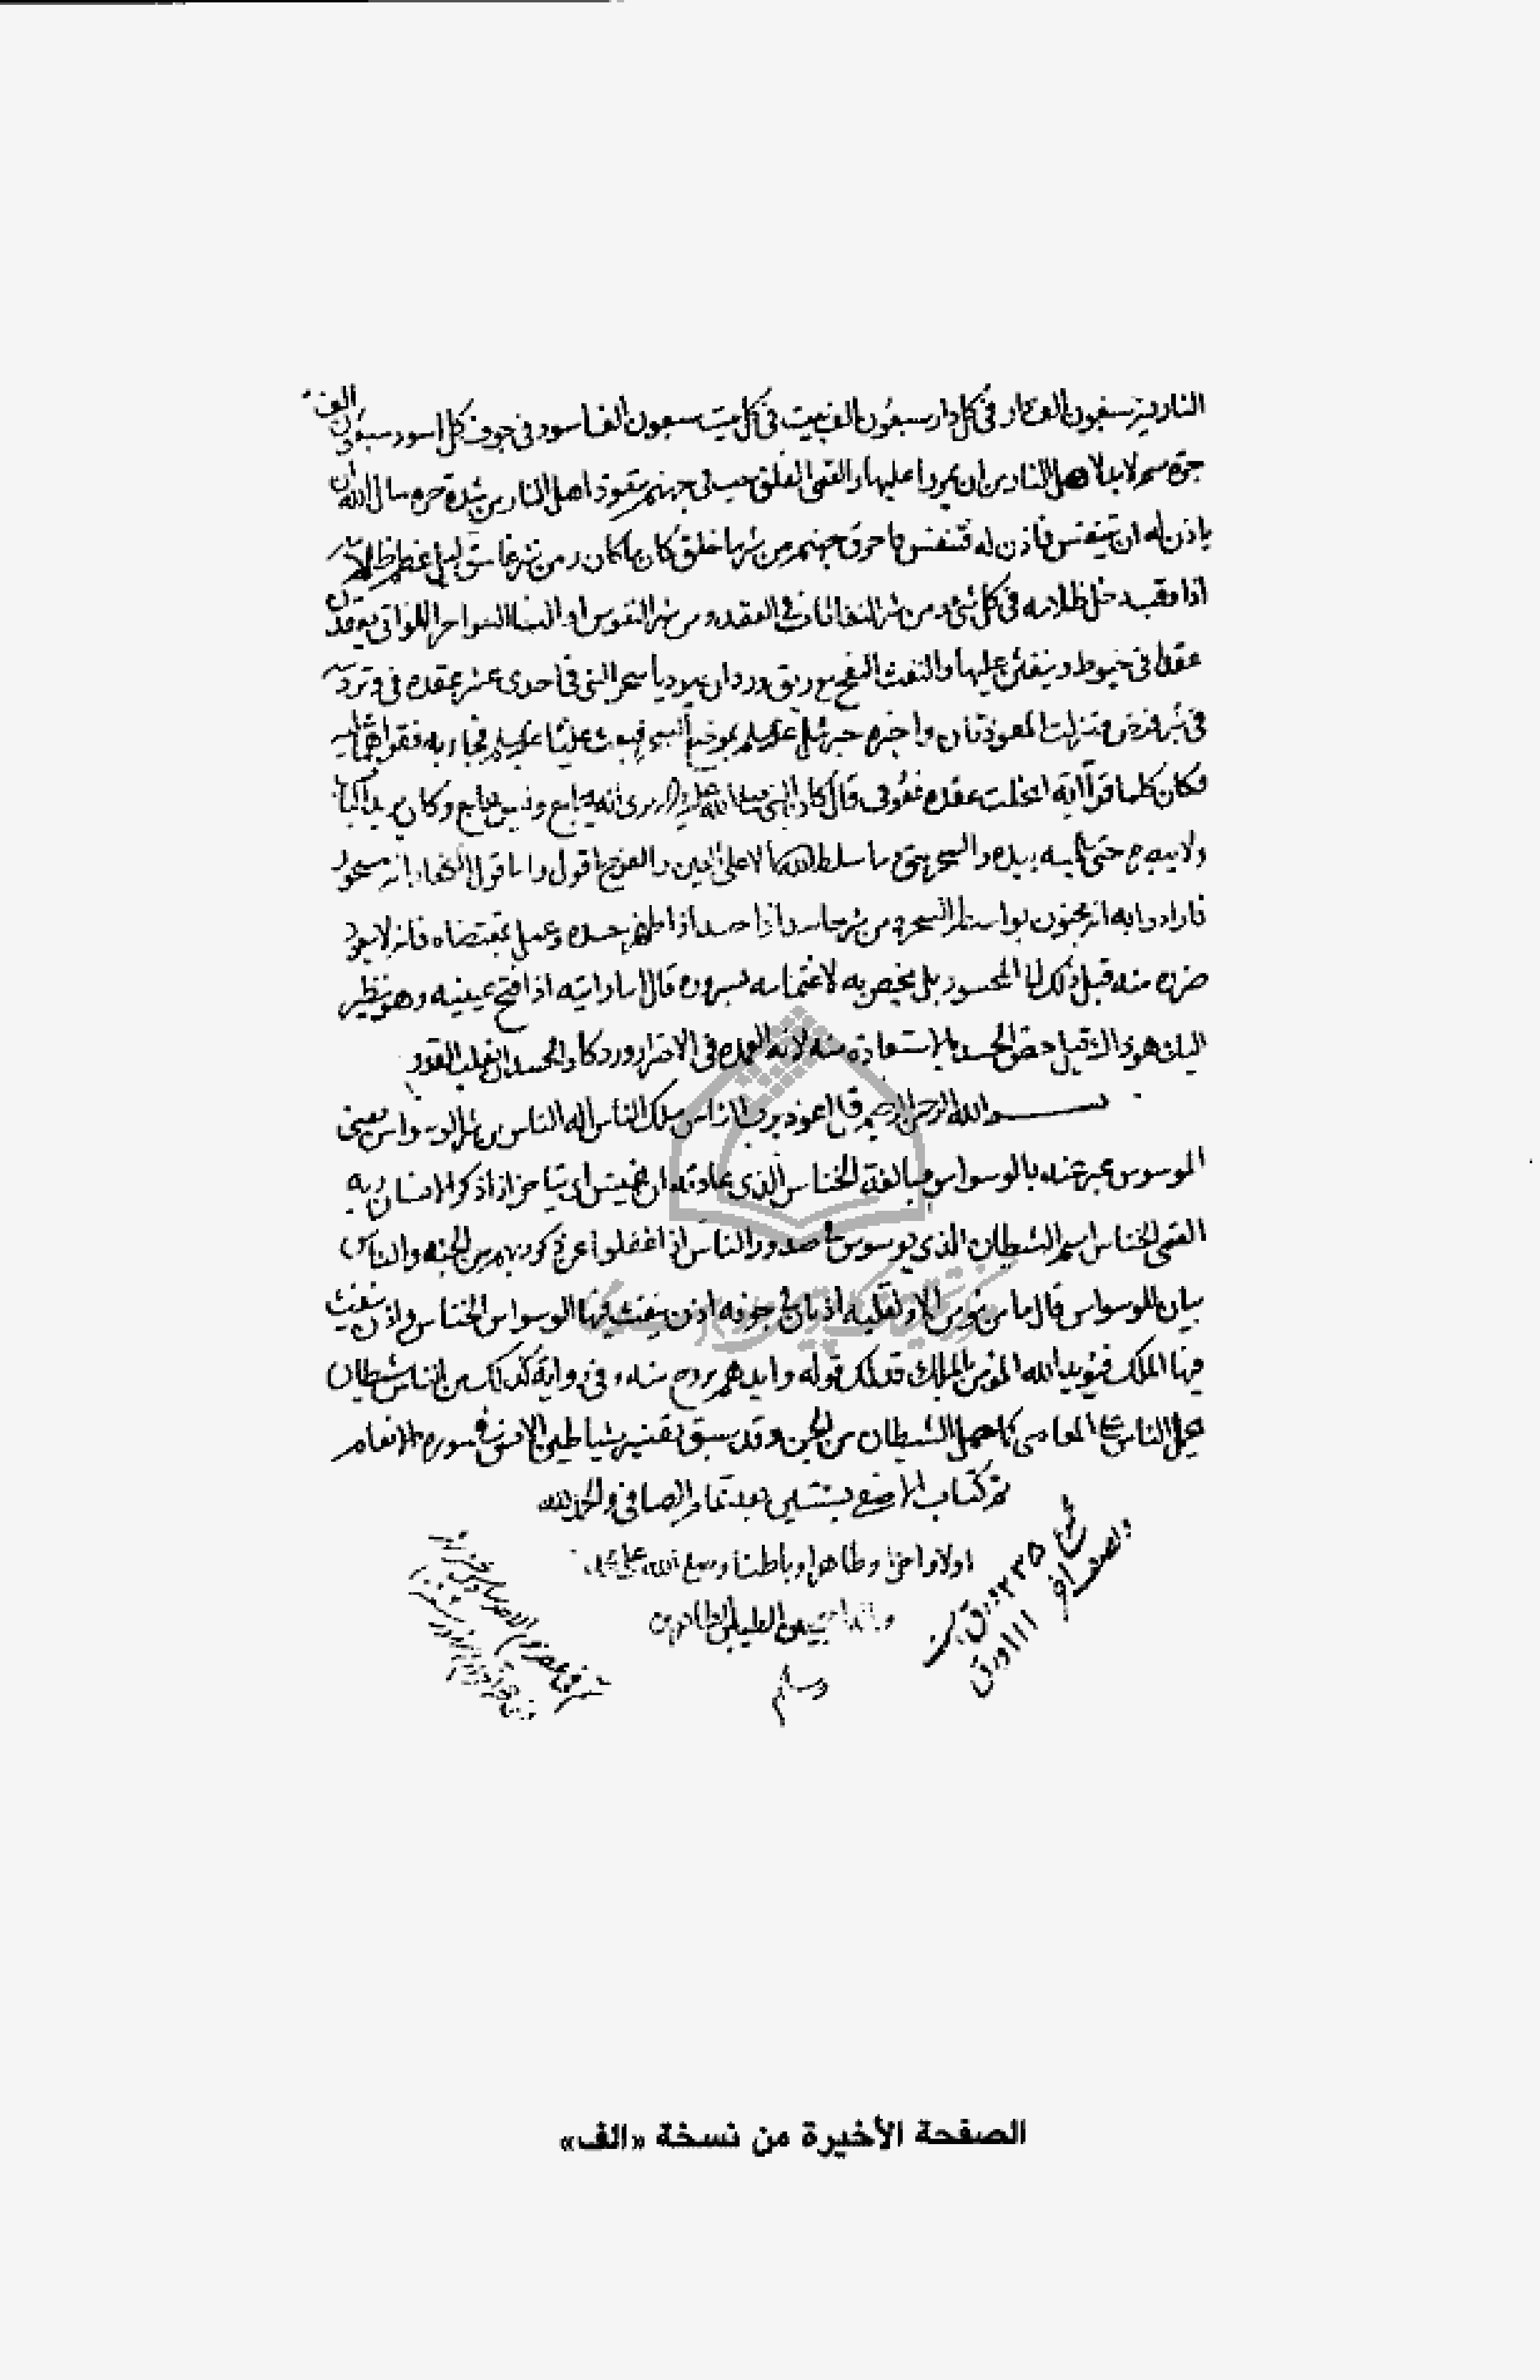 النار فيه سبعون الف دار فى كل دار سبعون الف بيت فى كل بيت سبعون الف اسود فى جوف كل اسود سبعون الف
جرة سم لابد لاهل النار من ان يمروا عليها والقمى الفلق جب فى جهنم يتعوذ اهل النار من شدة حره سال الله ان
ياذن له ان يتنفس فاذن له فتنفس فاحرق جهنم من شر ما خلق كان ما كان ومن شر غاسق ليل عظم ظلامه
اذا وقب دخل ظلامه فى كل شئ ومن شر النفاثات فى العقد ومن شر النفوس او النساء السواحر اللواتى يعقدن
عقدا فى خيوط وينفثن عليها والنفث النفخ مع ريق ورد ان يهوديا سحر النبى فى احدى عشر عقدة فى وتر دسه
فى بئر فمرض فنزلت المعوذتان واخبره جبرئيل بموضع السحر فبعث عليا فجاء به فقراهما عليه
فكان كلما قرا اية انحلت عقدة قال كان النبى صلى الله عليه واله يرى انه يجامع وليس يجامع وكان يريد الباب
ولا يبصره حتى يلمسه بيده والسحر حق وما سلط السحر الا على العين والفرج اقول واما قول الكفار انه مسحور
فارادوا به انه مجنون بواسطة السحر ومن شر حاسد اذا حسد اذا اظهر حسده وعمل بمقتضاه فانه لا يعود
ضرره منه قبل ذلك الى المحسود بل يخص به لاغتمامه بسروره قال اما رايته اذا فتح عينيه وهو ينظر
اليك هو ذاك قيل خص الحسد بالاستعاذة منه لانه العمدة فى الاضرار ورد كاد الحسد ان يغلب القدر
بسم الله الرحمن الرحيم قل اعوذ برب الناس ملك الناس اله الناس من شر الوسواس يعنى
الموسوس عبر عنه بالوسواس مبالغة الخناس الذى عادته ان يخنس اى يتاخر اذا ذكر الانسان ربه
القمى الخناس اسم الشيطان الذى يوسوس فى صدور الناس اذا غفلوا عن ذكر ربهم من الجنة والناس
بيان للوسواس قال ما من مؤمن الا ولقلبه اذنان فى جوفه اذن ينفث فيها الوسواس الخناس واذن ينفث
فيها الملك فيؤيد الله المؤمن بالملك فذلك قوله وايدهم بروح منه وفى رواية كذلك من الناس شيطان
يحمل الناس على المعاصى كما يحمل الشيطان من الجن وقد سبق تفسير شياطين الانس فى سورة الانعام
تم كتاب الاصفى بعد تمام الصافى والحمد لله
اولا واخرا وظاهرا وباطنا وصلى الله على محمد
الطيبين الطاهرين
وسلم
١١١ ورق
الصفحة الأخيرة من نسخة «الف»